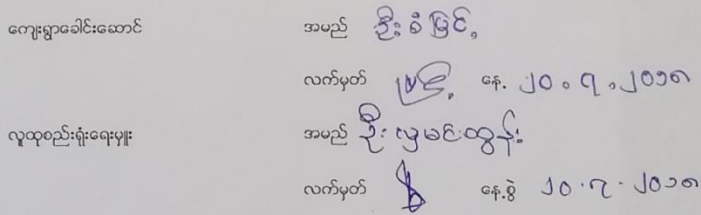 ကျေးရွာခေါင်းဆောင် အမည် ဦးစံမြင့်
လက်မှတ် နေ့. ၂၀.၇.၂၀၁၈
လူထုစည်းရုံးရေးမှူး အမည် ဦးလှမင်းထွန်း
လက်မှတ် နေ့.စွဲ ၂၀.၇.၂၀၁၈